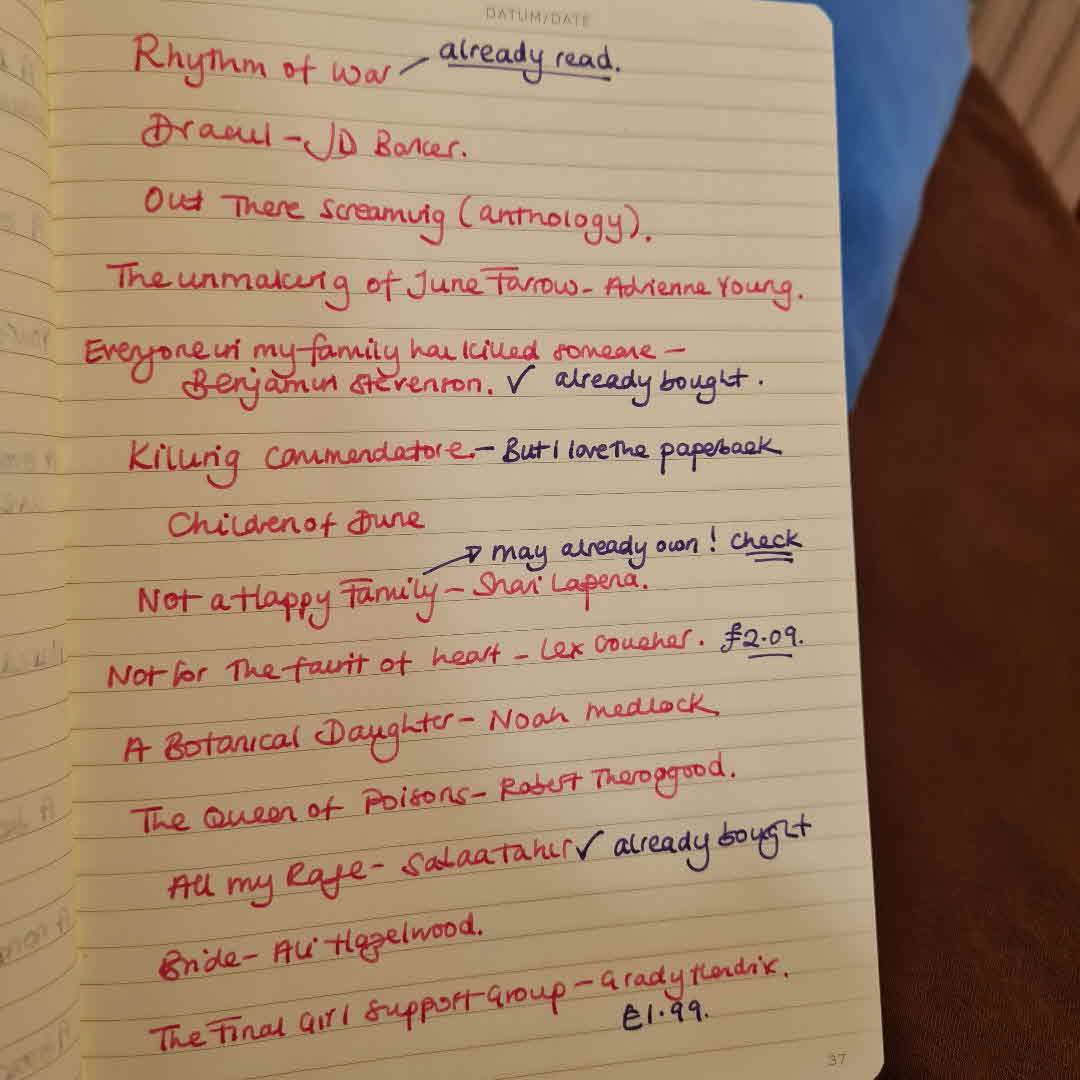 DATUM/DATE
Rhythm of War - already read.
Dracul - JD Barker.
Out There Screaming (anthology).
The unmaking of June Farrow - Adrienne Young.
Everyone in my family has killed someone -
Benjamin Stevenson. ✓ already bought.
Killing Commendatore. - But I love the paperback
Children of Dune
→ may already own! check
Not a Happy Family - Shari Lapena.
Not for The faint of heart - Lex Croucher. £2.09.
A Botanical Daughter - Noah Medlock
The Queen of Poisons - Robert Thorogood.
All my Rage - Sabaa Tahir ✓ already bought
Bride - Ali Hazelwood.
The Final Girl Support Group - Grady Hendrix.
£1.99.
37